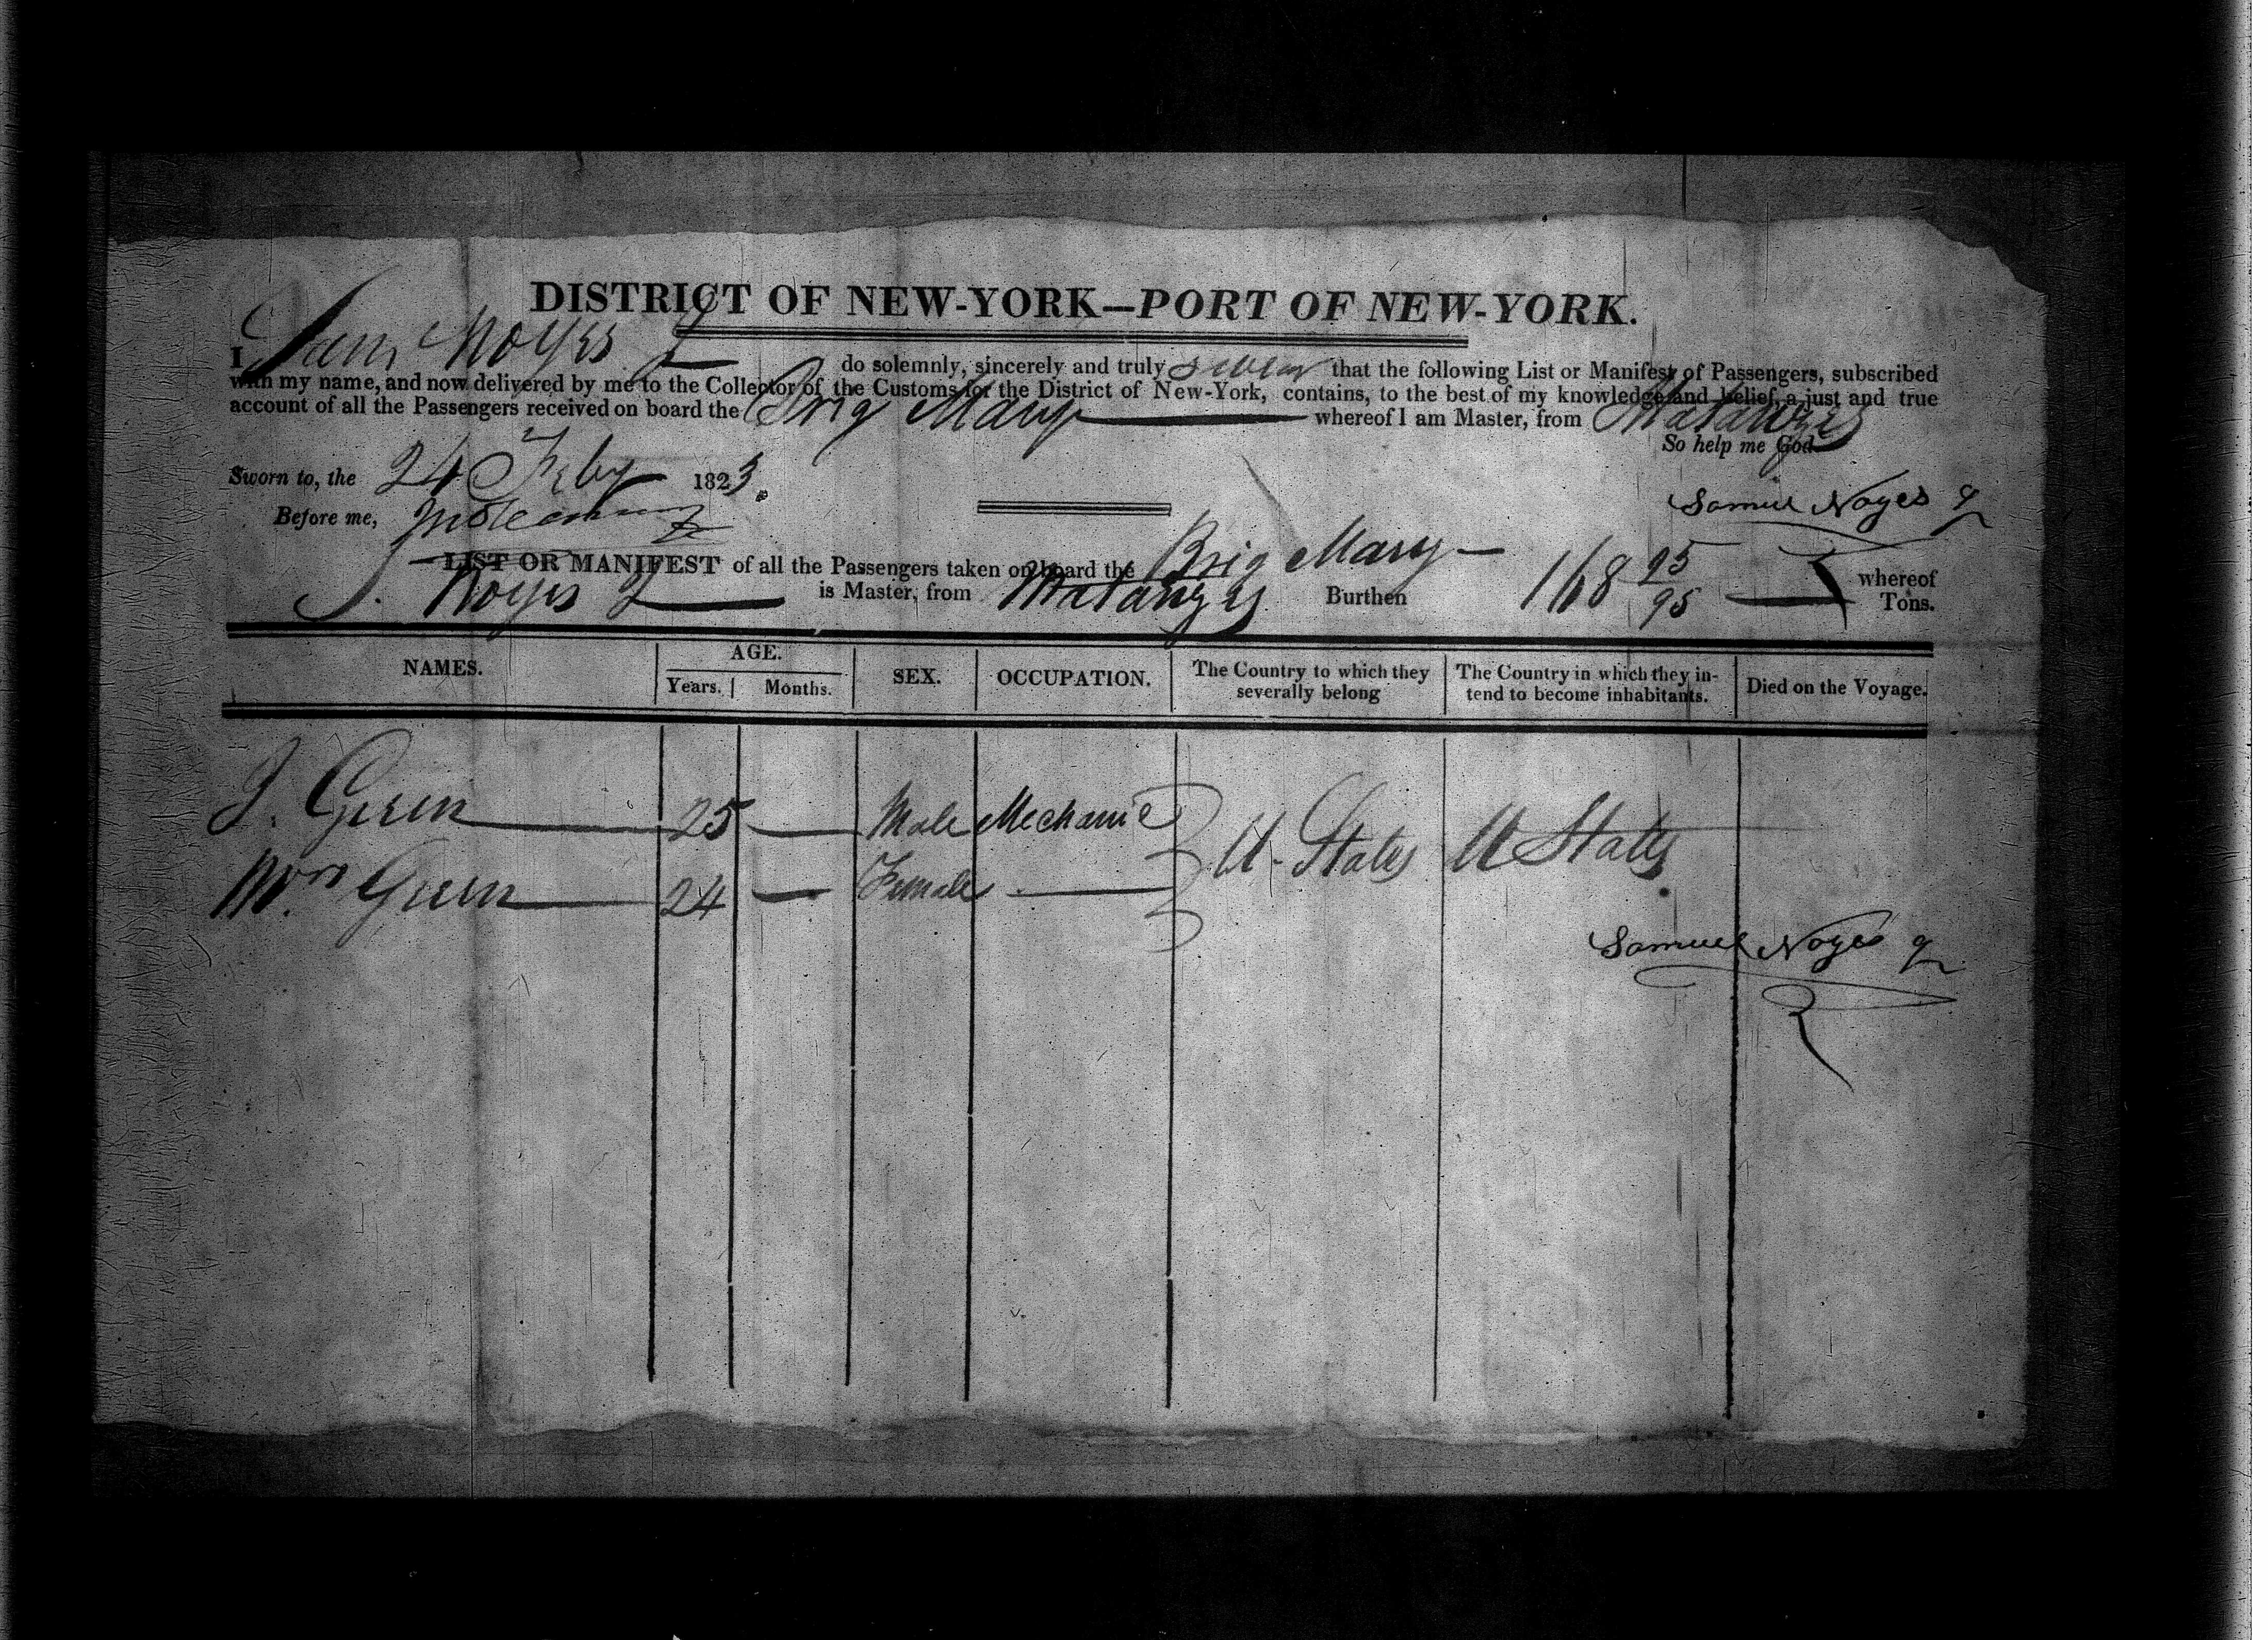 DISTRICT OF NEW-YORK—PORT OF NEW-YORK.
I Sam Noyes Jr do solemnly, sincerely and truly swear that the following List or Manifest of Passengers, subscribed
with my name, and now delivered by me to the Collector of the Customs for the District of New-York, contains, to the best of my knowledge and belief, a just and true
account of all the Passengers received on board the Brig Mary whereof I am Master, from Matanzes
So help me God.
Sworn to, the 24 Feby 1823.
Before me,
Samuel Noyes Jr
LIST OR MANIFEST of all the Passengers taken on board the Brig Mary — whereof
S. Noyes Jr is Master, from Matanzes Burthen 168 95/95 Tons.
NAMES. AGE. SEX. OCCUPATION. The Country to which they severally belong The Country in which they intend to become inhabitants. Died on the Voyage.
Years. Months.
J. Green 25 — Male Mechanic U. States U States
Mrs Green 24 — Female —
Samuel Noyes Jr